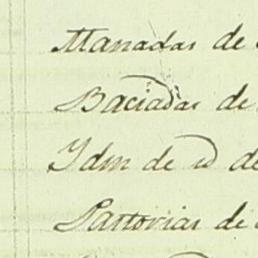 Manadas de
Baciadas de
Ydm de id de
Partorias de